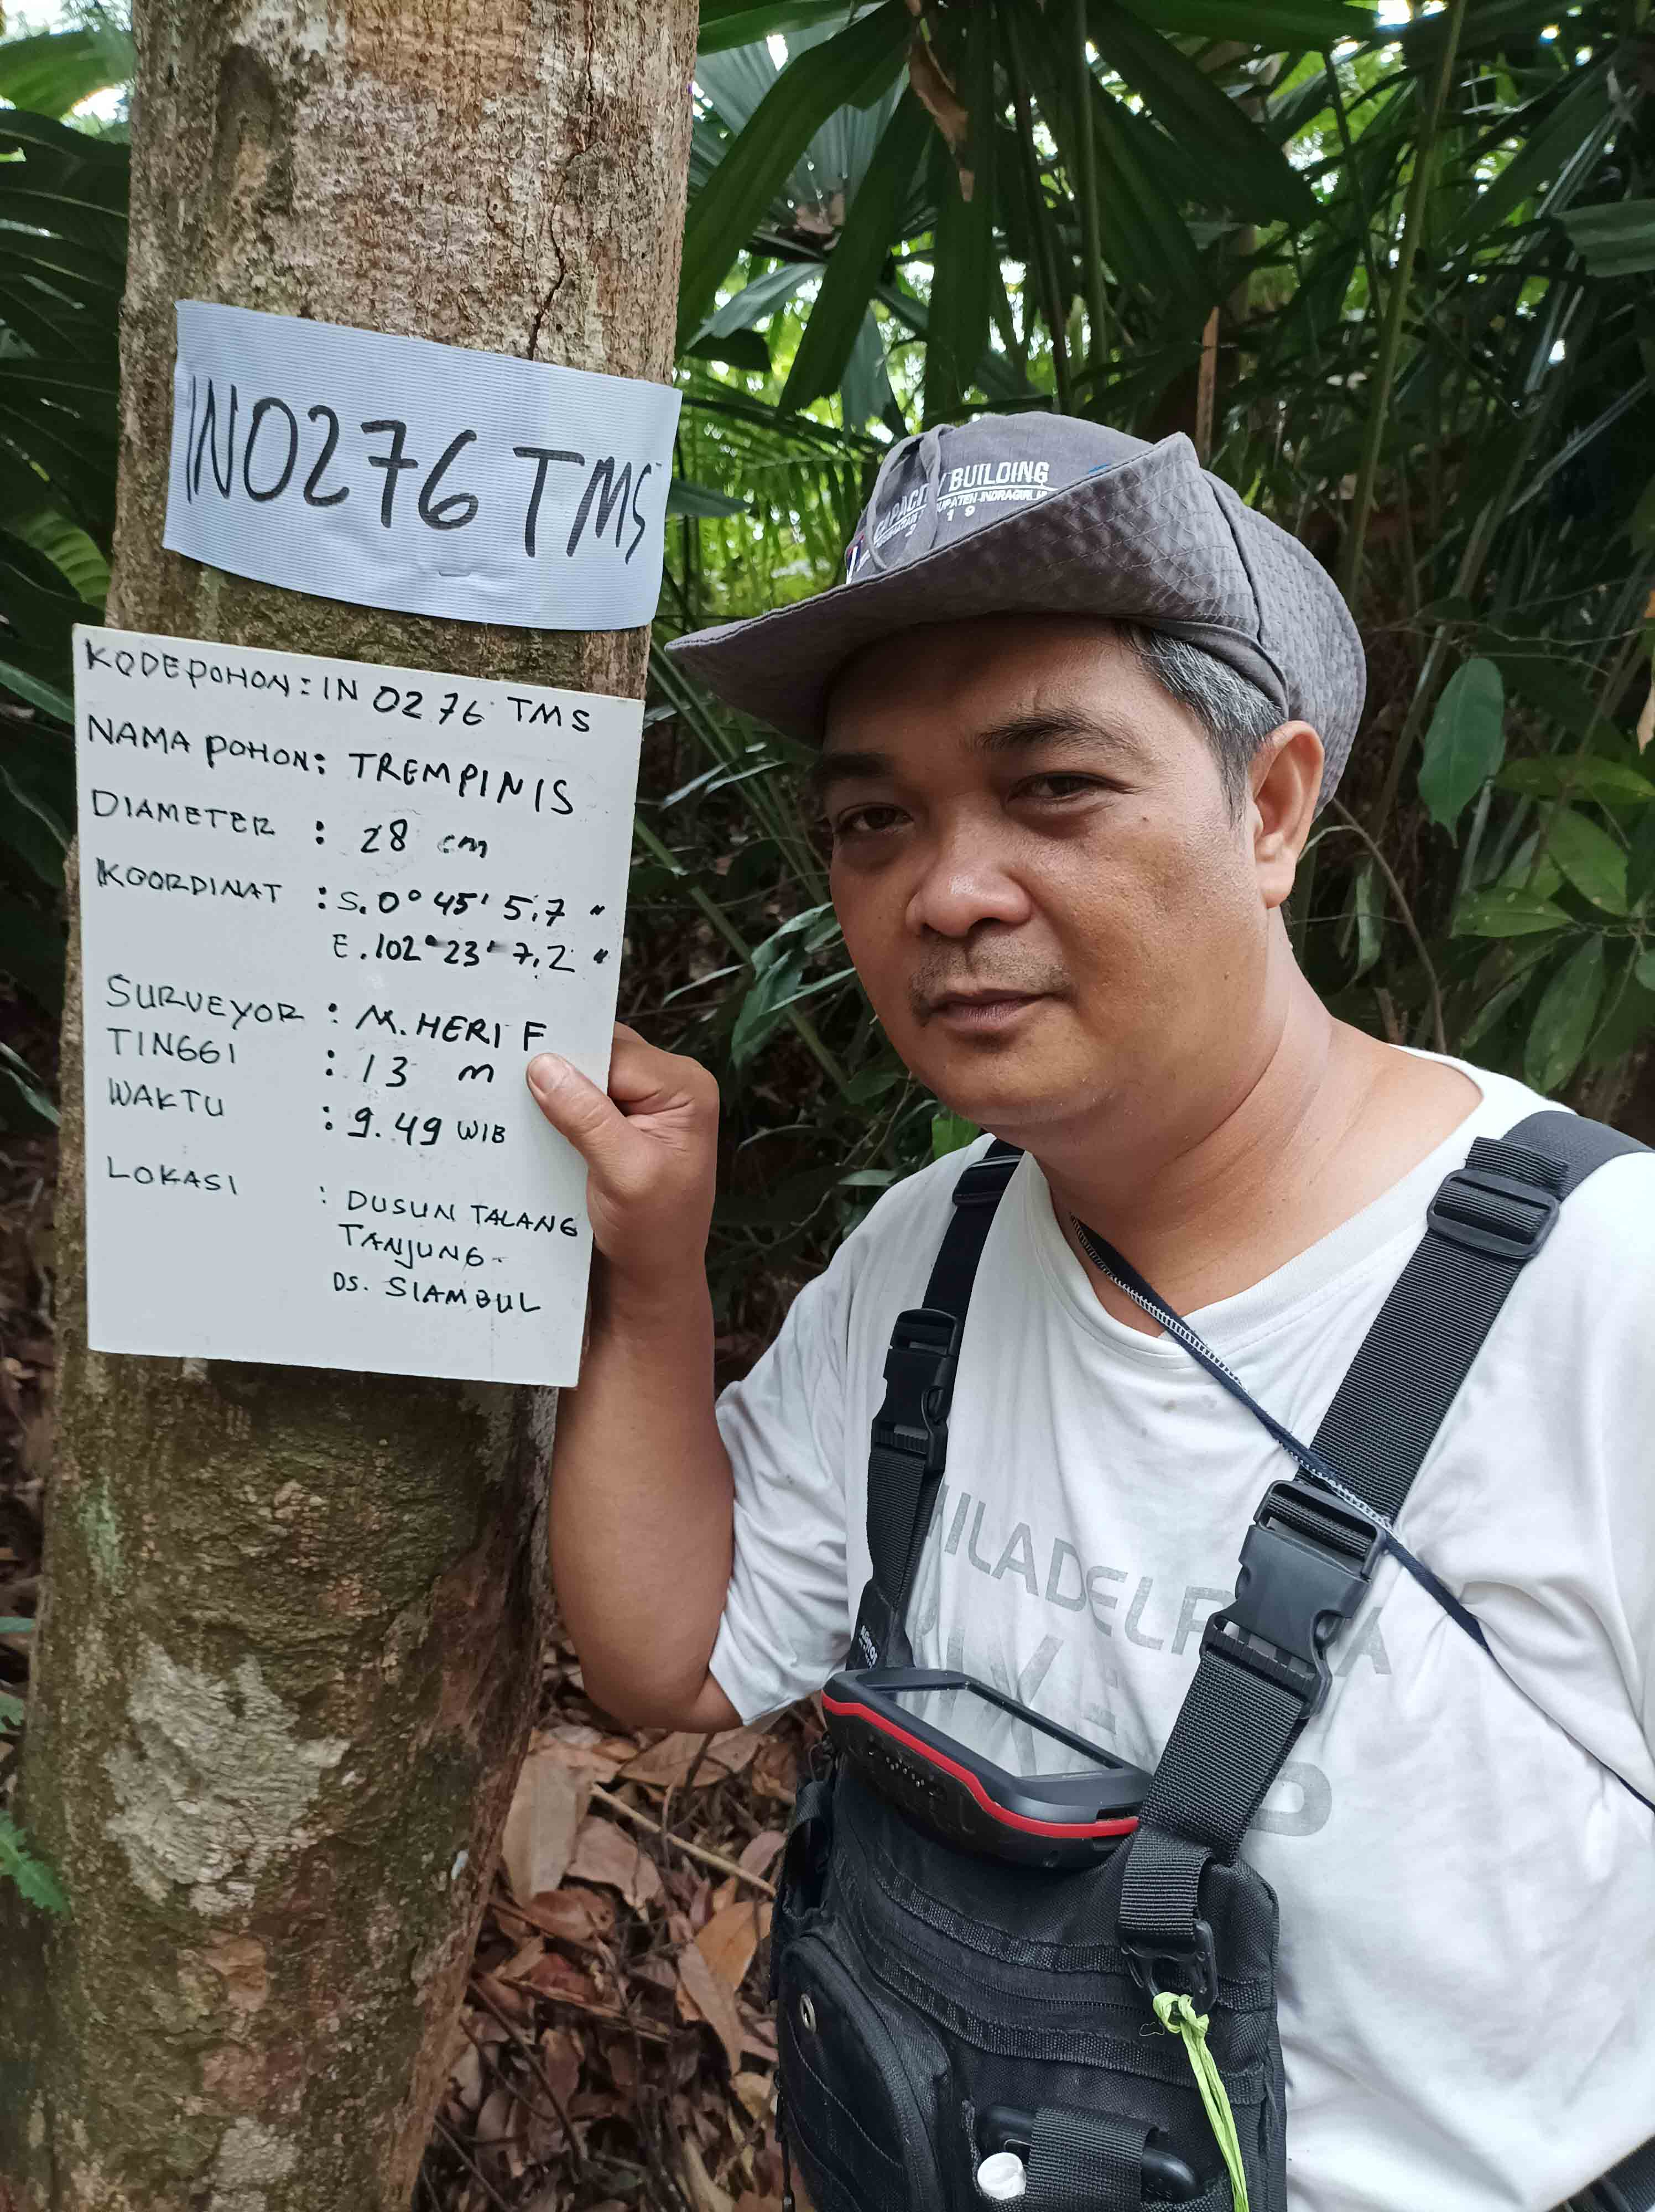 IN0276 TMS
KODE POHON : IN 0276 TMS
NAMA POHON : TREMPINIS
DIAMETER : 28 cm
KOORDINAT : S. 0° 45' 5,7 "
E. 102° 23' 7,2 "
SURVEYOR : M. HERI F
TINGGI : 13 m
WAKTU : 9.49 WIB
LOKASI : DUSUN TALANG
TANJUNG -
DS. SIAMBUL
BUILDING
19